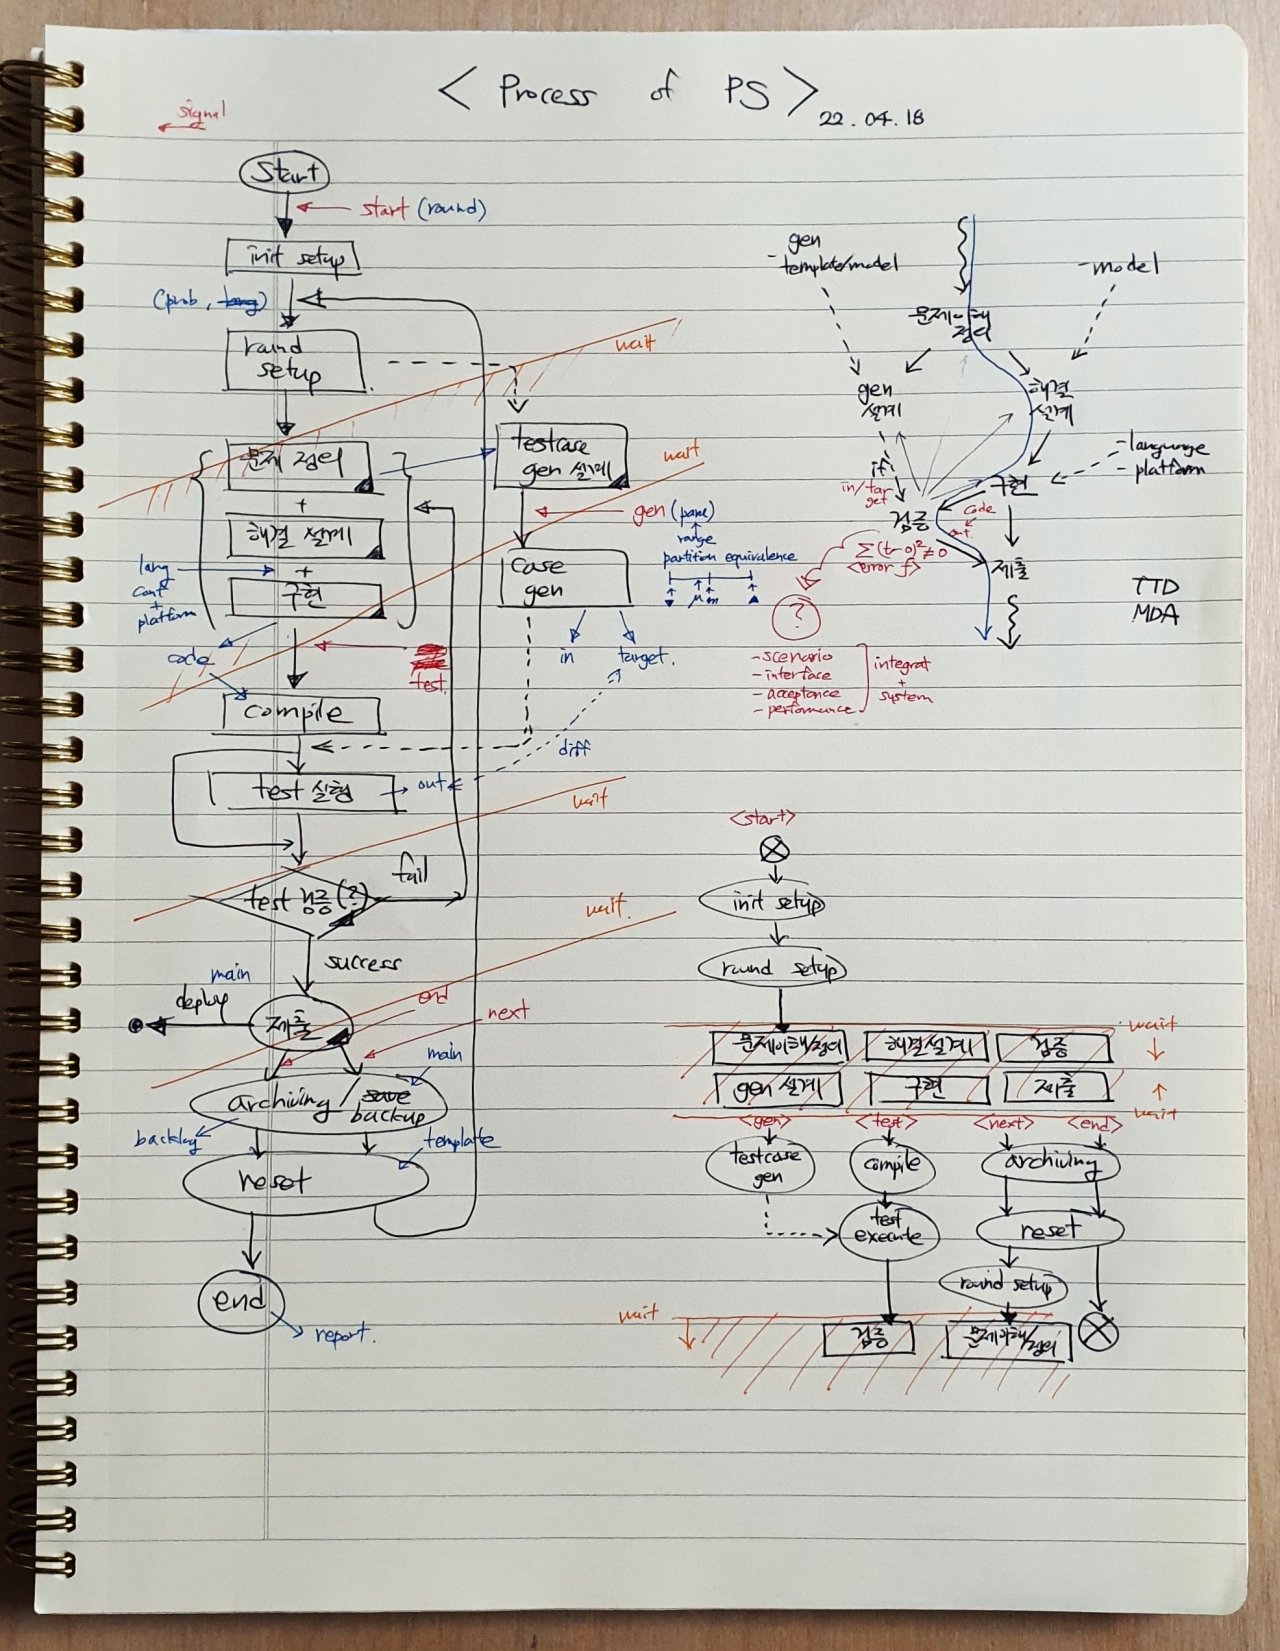 < Process of PS >
22.04.18
signal
Start
start (round)
init setup
(prob, lang)
round
setup
wait
문제 정의
testcase
gen 설계
wait
+
해결 설계
gen (para)
range
partition equivalence
lang
conf
+
platform
+
구현
case
gen
in
target.
code
test
compile
diff
test 실험
out
wait
test 검증(?)
fail
wait.
success
main
deploy
제출
end
next
main
archiving / save
backup
backlog
template
reset
end
report.
gen
- template/model
- model
문제이해
정의
gen
설계
해결
설계
- language
- platform
if
in/tar
get
구현
검증
code
out
∑(t-o)²≠0
<error f>
제출
?
TTD
MDA
- scenario
- interface
- acceptance
- performance
integrat
+
system
<start>
init setup
round setup
wait
문제이해/정의
해결설계
검증
gen 설계
구현
제출
wait
<gen>
<test>
<next>
<end>
testcase
gen
compile
archiving
test
execute
reset
round setup
wait
검증
문제이해/정의